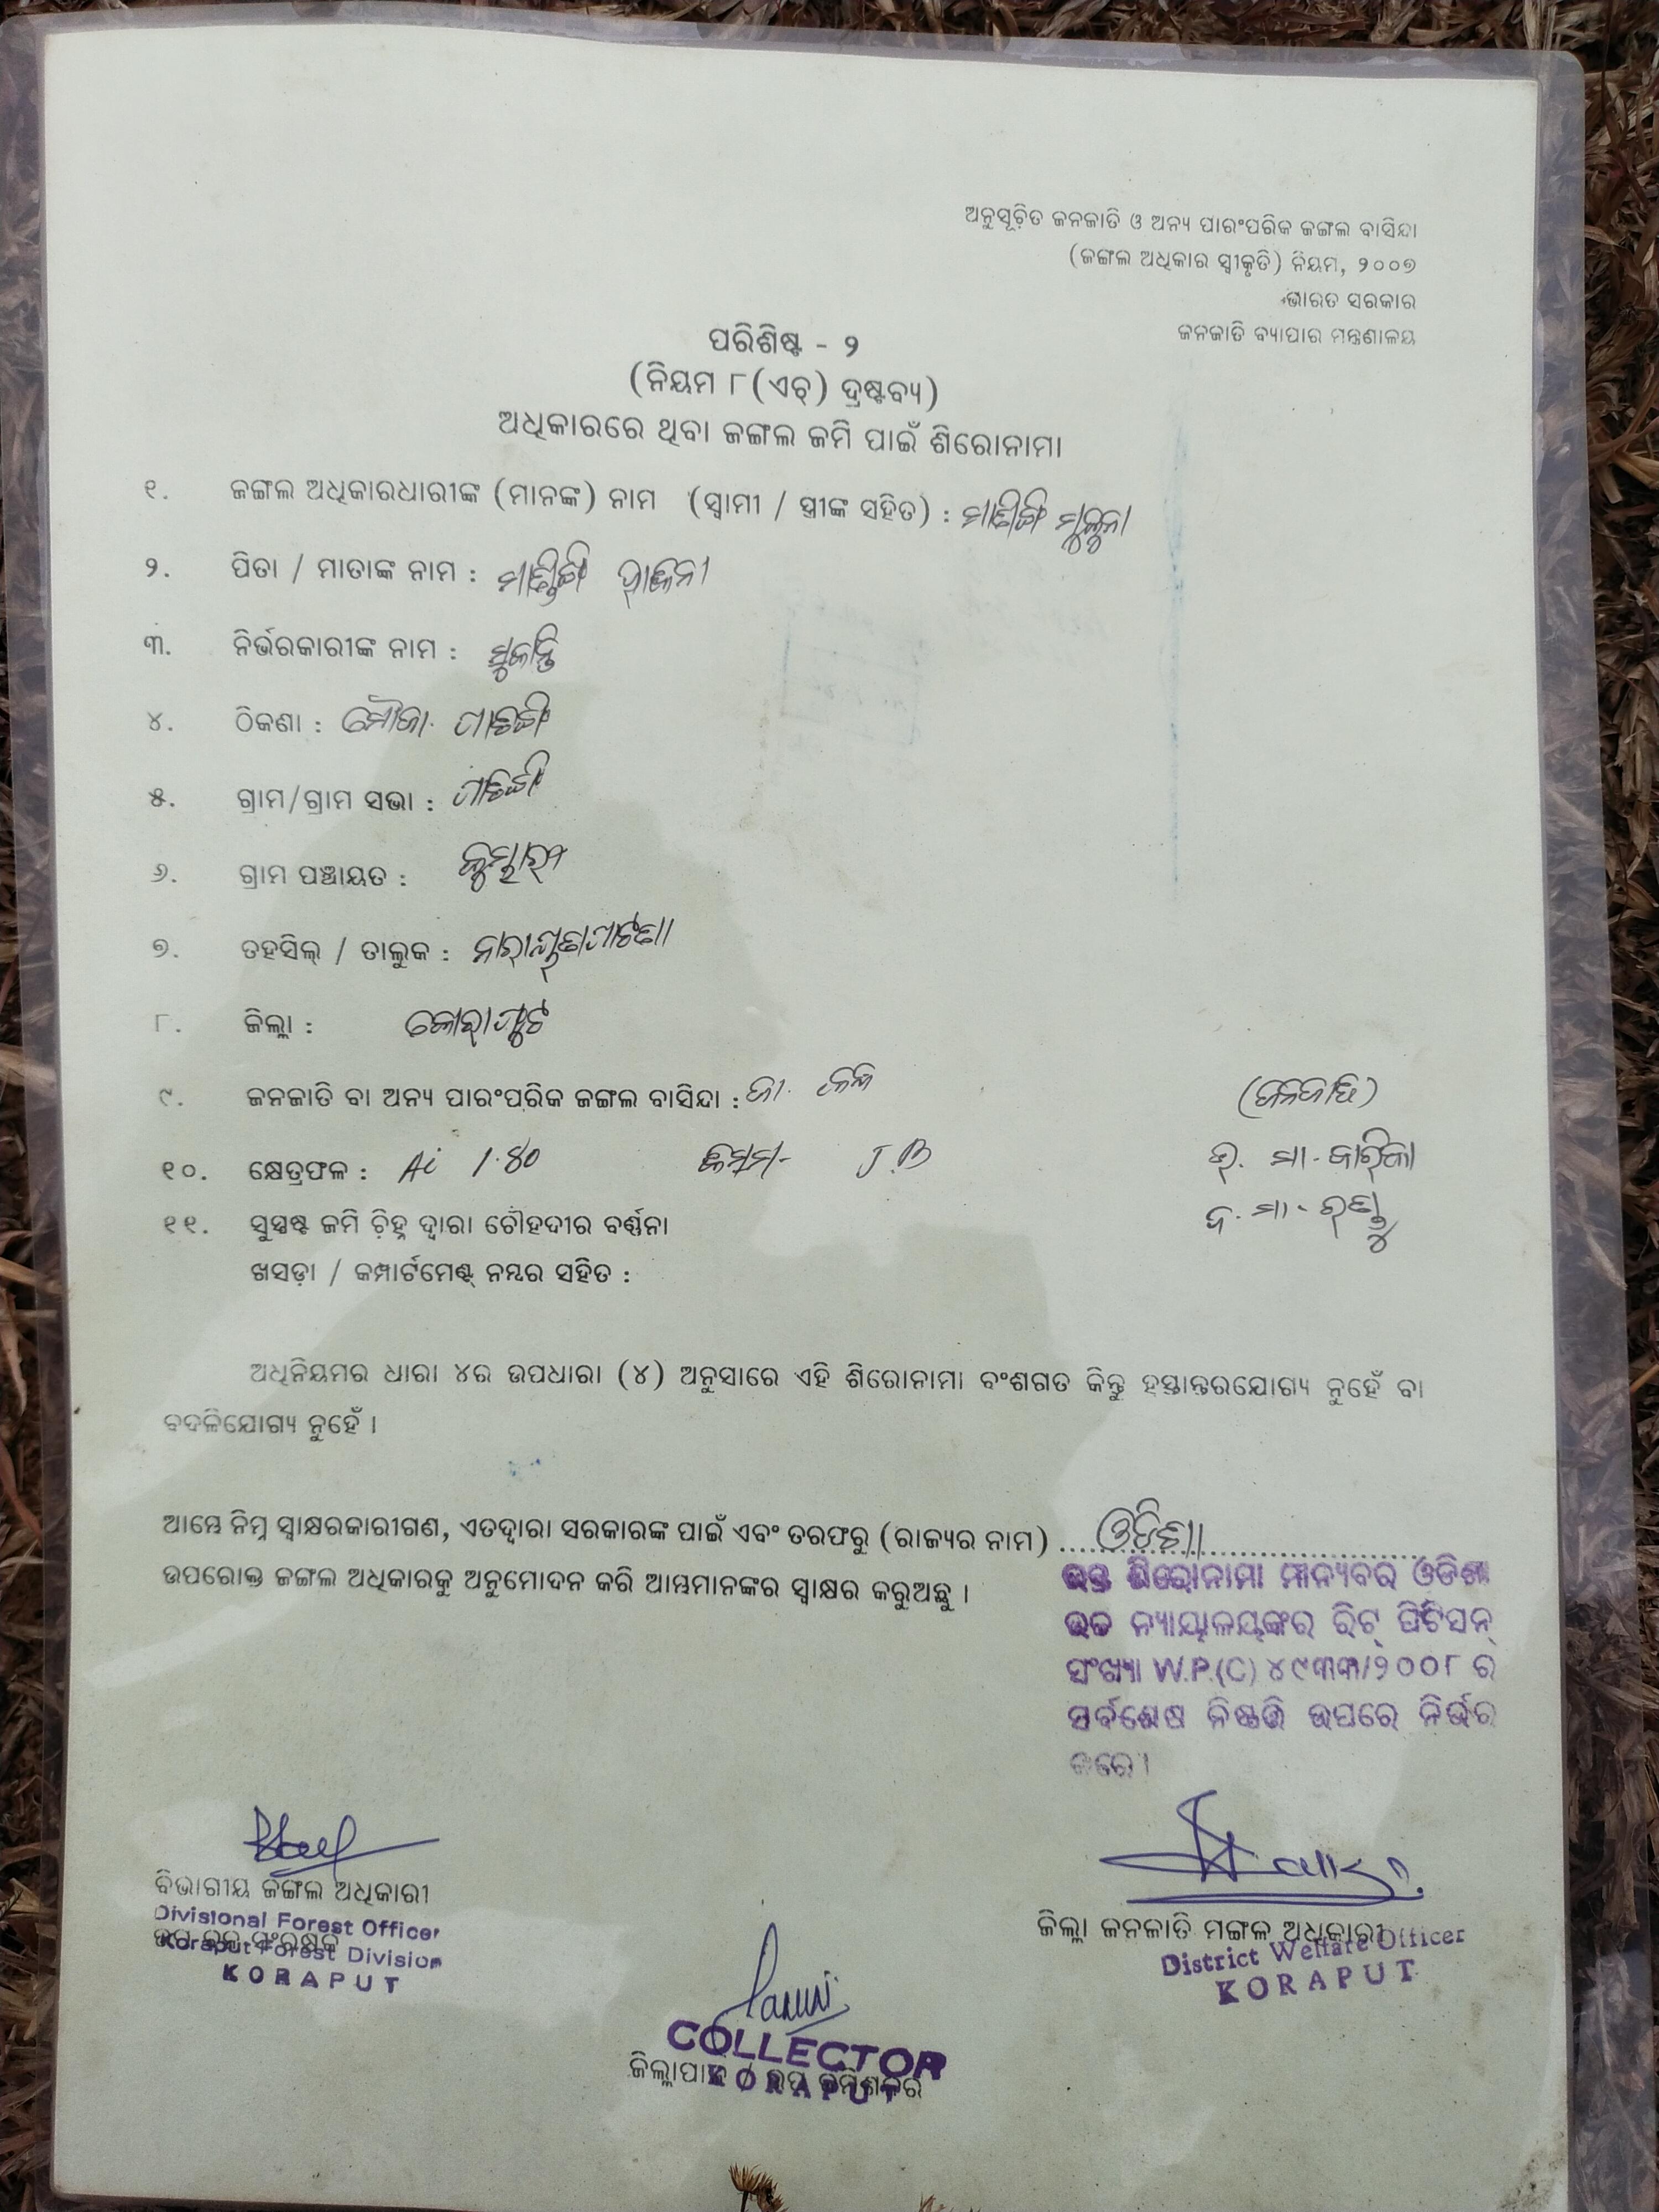 ଅନୁସୂଚିତ ଜନଜାତି ଓ ଅନ୍ୟ ପାରଂପରିକ ଜଙ୍ଗଲ ବାସିନ୍ଦା
(ଜଙ୍ଗଲ ଅଧିକାର ସ୍ୱୀକୃତି) ନିୟମ, ୨୦୦୭
ଭାରତ ସରକାର
ଜନଜାତି ବ୍ୟାପାର ମନ୍ତ୍ରଣାଳୟ
ପରିଶିଷ୍ଟ - ୨
(ନିୟମ ୮(ଏଚ୍) ଦ୍ରଷ୍ଟବ୍ୟ)
ଅଧିକାରରେ ଥିବା ଜଙ୍ଗଲ ଜମି ପାଇଁ ଶିରୋନାମା
୧. ଜଙ୍ଗଲ ଅଧିକାରଧାରୀଙ୍କ (ମାନଙ୍କ) ନାମ (ସ୍ୱାମୀ / ସ୍ତ୍ରୀଙ୍କ ସହିତ) :
୨. ପିତା / ମାତାଙ୍କ ନାମ :
୩. ନିର୍ଭରକାରୀଙ୍କ ନାମ :
୪. ଠିକଣା : ମୌଜା.
୫. ଗ୍ରାମ/ଗ୍ରାମ ସଭା :
୬. ଗ୍ରାମ ପଞ୍ଚାୟତ :
୭. ତହସିଲ୍ / ତାଲୁକ : ନାରାୟଣପାଟଣା
୮. ଜିଲ୍ଲା : କୋରାପୁଟ
୯. ଜନଜାତି ବା ଅନ୍ୟ ପାରଂପରିକ ଜଙ୍ଗଲ ବାସିନ୍ଦା : (ଜନଜାତି)
୧୦. କ୍ଷେତ୍ରଫଳ : 1.80 କିସମ-
୧୧. ସୁସ୍ପଷ୍ଟ ଜମି ଚିହ୍ନ ଦ୍ୱାରା ଚୌହଦୀର ବର୍ଣ୍ଣନା
ଖସଡ଼ା / କମ୍ପାର୍ଟମେଣ୍ଟ୍ ନମ୍ବର ସହିତ :
ଅଧିନିୟମର ଧାରା ୪ର ଉପଧାରା (୪) ଅନୁସାରେ ଏହି ଶିରୋନାମା ବଂଶଗତ କିନ୍ତୁ ହସ୍ତାନ୍ତରଯୋଗ୍ୟ ନୁହେଁ ବା
ବଦଳିଯୋଗ୍ୟ ନୁହେଁ ।
ଆମ୍ଭେ ନିମ୍ନ ସ୍ୱାକ୍ଷରକାରୀଗଣ, ଏତଦ୍ୱାରା ସରକାରଙ୍କ ପାଇଁ ଏବଂ ତରଫରୁ (ରାଜ୍ୟର ନାମ) ଓଡିଶା
ଉପରୋକ୍ତ ଜଙ୍ଗଲ ଅଧିକାରକୁ ଅନୁମୋଦନ କରି ଆମ୍ଭମାନଙ୍କର ସ୍ୱାକ୍ଷର କରୁଅଛୁ ।
ଉକ୍ତ ଶିରୋନାମା ମାନ୍ୟବର ଓଡିଶା
ଉଚ୍ଚ ନ୍ୟାୟାଳୟଙ୍କର ରିଟ୍ ପିଟିସନ୍
ସଂଖ୍ୟା W.P.(C) ୪୯୩୩/୨୦୦୮ ର
ସର୍ବଶେଷ ନିଷ୍ପତ୍ତି ଉପରେ ନିର୍ଭର
କରେ ।
ବିଭାଗୀୟ ଜଙ୍ଗଲ ଅଧିକାରୀ
Divisional Forest Officer
ଉପ ବନ ସଂରକ୍ଷକ
Koraput Forest Division
KORAPUT
ଜିଲ୍ଲା ଜନଜାତି ମଙ୍ଗଳ ଅଧିକାରୀ
District Welfare Officer
KORAPUT
COLLECTOR
ଜିଲ୍ଲାପାଳ / ଉପ କମିଶନର
KORAPUT